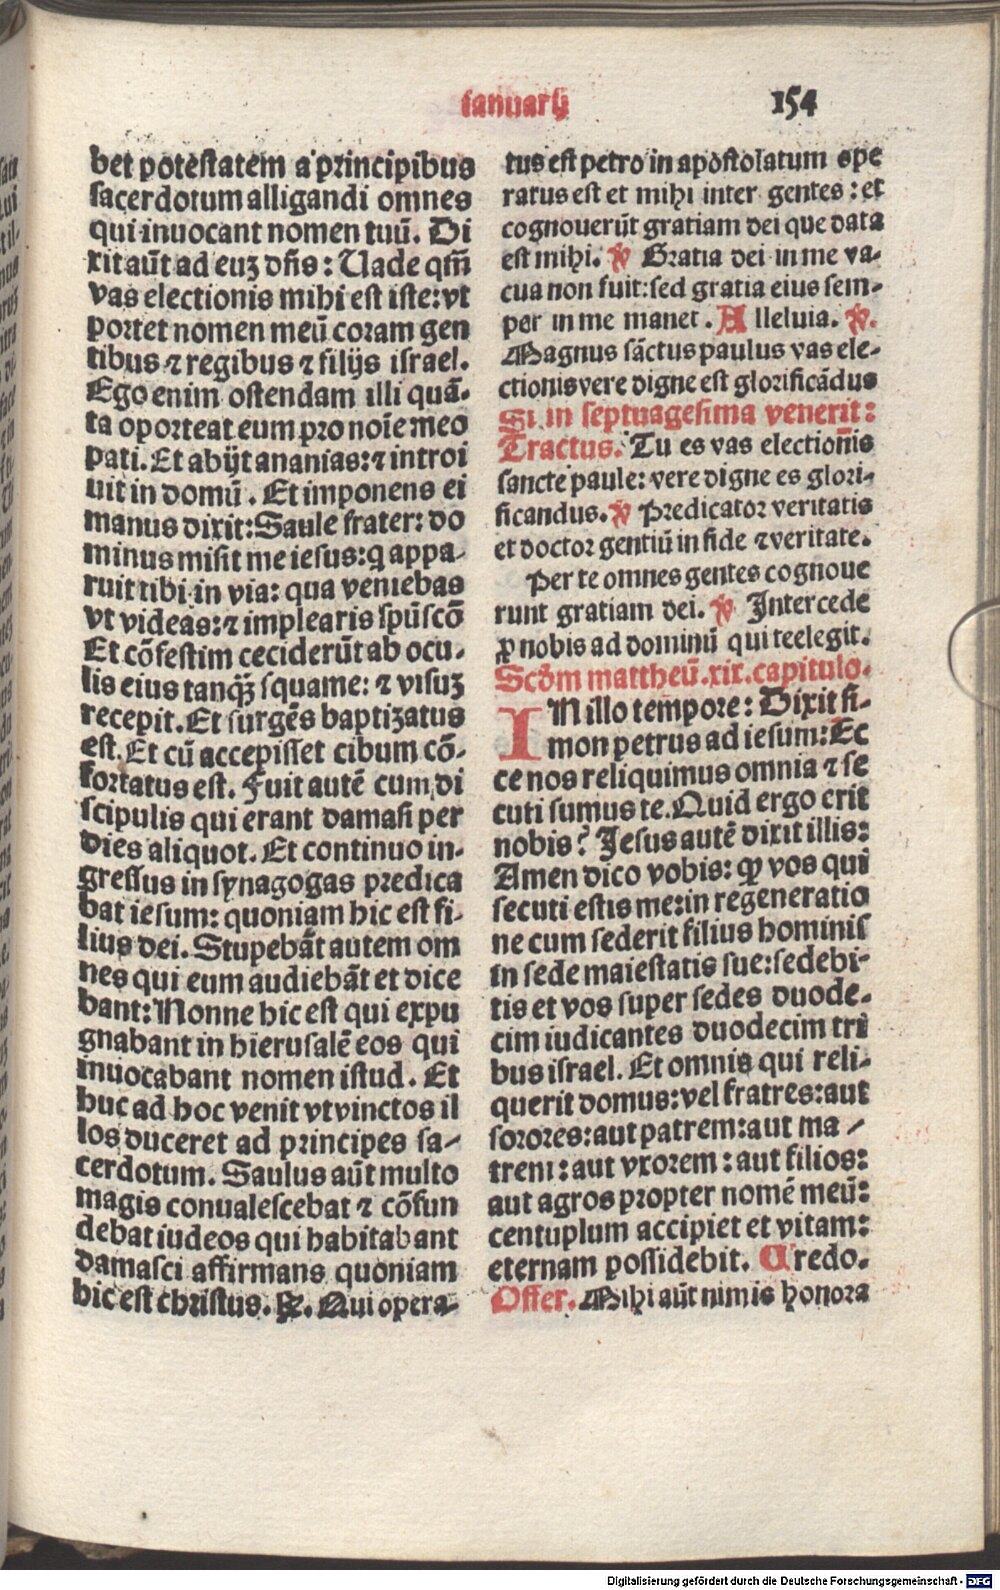 ianuarij
154
bet potestatem a principibus
sacerdotum alligandi omnes
qui inuocant nomen tuū. Di
xit aūt ad euʒ dn̄s: Uade qm̄
vas electionis mihi est iste: vt
portet nomen meū coram gen
tibus ⁊ regibus ⁊ filijs israel.
Ego enim ostendam illi quā-
ta oporteat eum pro noīe meo
pati. Et abijt ananias: ⁊ introi
uit in domū. Et imponens ei
manus dixit: Saule frater: do
minus misit me iesus: q appa-
ruit tibi in via: qua veniebas
vt videas: ⁊ implearis spūscō
Et cōfestim ceciderūt ab ocu-
lis eius tanqʒ̄ squame: ⁊ visuʒ
recepit. Et surgēs baptizatus
est. Et cū accepisset cibum cō-
fortatus est. Fuit autē cum di
scipulis qui erant damasi per
dies aliquot. Et continuo in-
gressus in synagogas predica
bat iesum: quoniam hic est fi-
lius dei. Stupebāt autem om
nes qui eum audiebāt et dice
bant: Nonne hic est qui expu
gnabant in hierusalē eos qui
inuocabant nomen istud. Et
huc ad hoc venit vt vinctos il
los duceret ad principes sa-
cerdotum. Saulus aūt multo
magis conualescebat ⁊ cōfun
debat iudeos qui habitabant
damasci affirmans quoniam
hic est christus. Qui opera-
tus est petro in apostolatum ope
ratus est et mihi inter gentes: et
cognouerūt gratiam dei que data
est mihi. ℣ Gratia dei in me va-
cua non fuit: sed gratia eius sem-
per in me manet. Alleluia. ℣.
Magnus sāctus paulus vas ele-
ctionis vere digne est glorificādus
Si in septuagesima venerit:
Tractus. Tu es vas electiōnis
sancte paule: vere digne es glori-
ficandus. ℣ Predicator veritatis
et doctor gentiū in fide ⁊ veritate.
Per te omnes gentes cognoue
runt gratiam dei. ℣ Intercede
ꝓ nobis ad dominū qui te elegit.
Scd̄m mattheū. xix. capitulo.
IN illo tempore: Dixit si-
mon petrus ad iesum: Ec
ce nos reliquimus omnia ⁊ se
cuti sumus te. Quid ergo erit
nobis? Jesus autē dixit illis:
Amen dico vobis: ꝙ vos qui
secuti estis me: in regeneratio
ne cum sederit filius hominis
in sede maiestatis sue: sedebi-
tis et vos super sedes duode-
cim iudicantes duodecim tri
bus israel. Et omnis qui reli-
querit domus: vel fratres: aut
sorores: aut patrem: aut ma-
trem: aut vxorem: aut filios:
aut agros propter nomē meū:
centuplum accipiet et vitam:
eternam possidebit. Credo.
Offer. Mihi aūt nimis honora
Digitalisierung gefördert durch die Deutsche Forschungsgemeinschaft - DFG